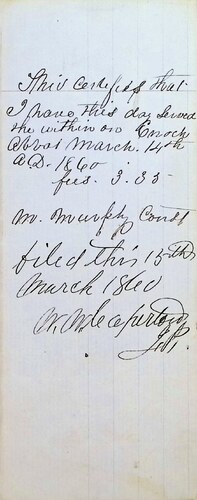 This certifys that
I have this day served
the within on Enoch
March. 14th
A.D. 1860
fees. 3.35
M. Murphy Const
filed this 15th
March 1860
J.P.